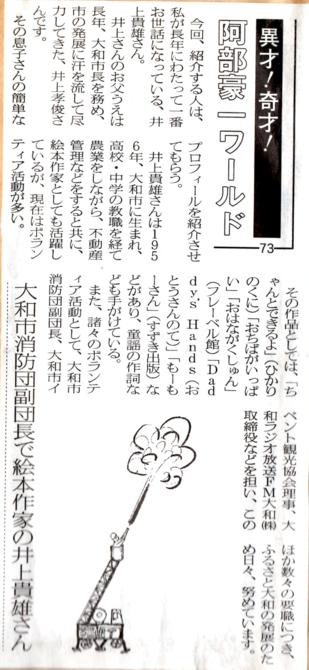 異才！奇才！
阿部豪一ワールド
73
今回、紹介する人は、
私が長年にわたって一番
お世話になっている、井
上貴雄さん。
井上さんのお父うえは
長年、大和市長を務め、
市の発展に汗を流して尽
力してきた、井上孝俊さ
んです。
その息子さんの簡単な
プロフィールを紹介させ
てもらう。
井上貴雄さんは195
6年、大和市に生まれ、
高校・中学の教職を経て
農業をしながら、不動産
管理などをすると共に、
絵本作家としても活躍し
ているが、現在はボラン
ティア活動が多い。
その作品としては、「ち
ゃんとできるよ」（ひかり
のくに）「おちばがいっぱ
い」「おはながくしゅん」
（フレーベル館）「Dad
dy's Hands（お
とうさんのて）」「もーも
ーさん」（すずき出版）な
どがあり、童謡の作詞な
ども手がけている。
また、諸々のボランテ
ィア活動として、大和市
消防団副団長、大和市イ
ベント観光協会理事、大
和ラジオ放送FM大和㈱
取締役などを担い、この
ほか数々の要職につき、
ふるさと大和の発展のた
め日々、努めています。
大和市消防団副団長で絵本作家の井上貴雄さん